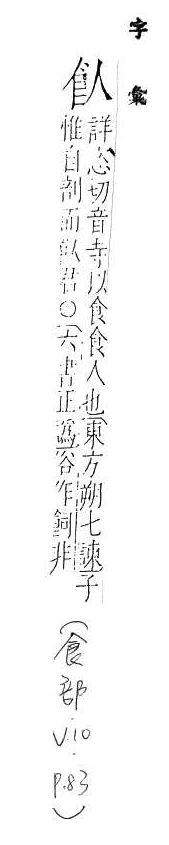 字彙
飤
詳恣切音寺以食食人也東方朔七諫子
惟自割而飤君○六書正譌俗作飼非
(食部.V10.P.83)